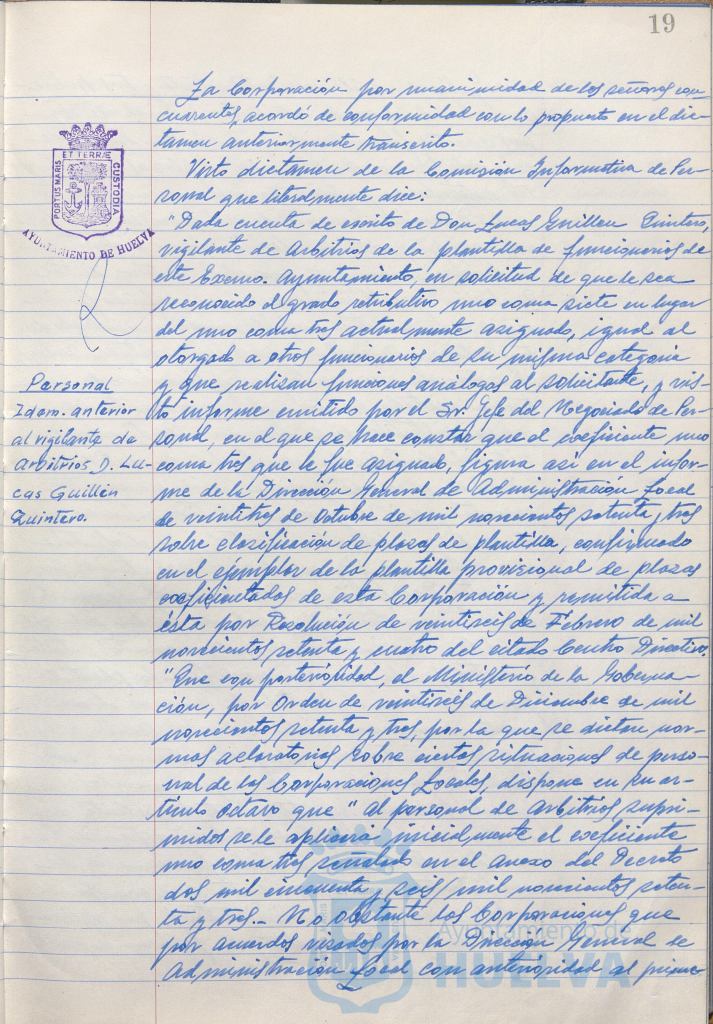 19
La Corporación por unanimidad de los señores con-
currentes, acordó de conformidad con lo propuesto en el dic-
tamen anteriormente transcrito.
Visto dictamen de la Comisión Informativa de Per-
sonal que literalmente dice:
"Dada cuenta de escrito de Don Lucas Guillen Quintero,
vigilante de Arbitrios de la plantilla de funcionarios de
este Excmo. Ayuntamiento, en solicitud de que le sea
reconocido el grado retributivo uno coma siete en lugar
del uno coma tres actualmente asignado, igual al
otorgado a otros funcionarios de su misma categoria
y que realizan funciones análogas al solicitante, y vis-
to informe emitido por el Sr. Jefe del Negociado de Per-
sonal, en el que se hace constar que el coeficiente uno
coma tres que le fue asignado, figura asi en el infor-
me de la Dirección General de Administración Local
de veintitres de Octubre de mil novecientos setenta y tres
sobre clasificación de plazas de plantilla, confirmado
en el ejemplar de la plantilla provisional de plazas
coeficientadas de esta Corporación y remitida a
ésta por Resolución de veintiseis de Febrero de mil
novecientos setenta y cuatro del citado Centro Directivo.
"Que con posterioridad, el Ministerio de la Goberna-
ción, por Orden de veintiseis de Diciembre de mil
novecientos setenta y tres, por la que se dictan nor-
mas aclaratorias sobre ciertas situaciones de perso-
nal de las Corporaciones Locales, dispone en su ar-
tículo octavo que "al personal de Arbitrios, supri-
midos se le aplicará inicialmente el coeficiente
uno coma tres señalado en el anexo del Decreto
dos mil cincuenta y seis/mil novecientos seten-
ta y tres.- No obstante las Corporaciones que
por acuerdos visados por la Dirección General de
Administración Local con anterioridad al prime-
PORTUS MARIS ET TERRÆ CUSTODIA
AYUNTAMIENTO DE HUELVA
Personal
Idem. anterior
al vigilante de
Arbitrios, D. Lu-
cas Guillén
Quintero.
Ayuntamiento de
HUELVA